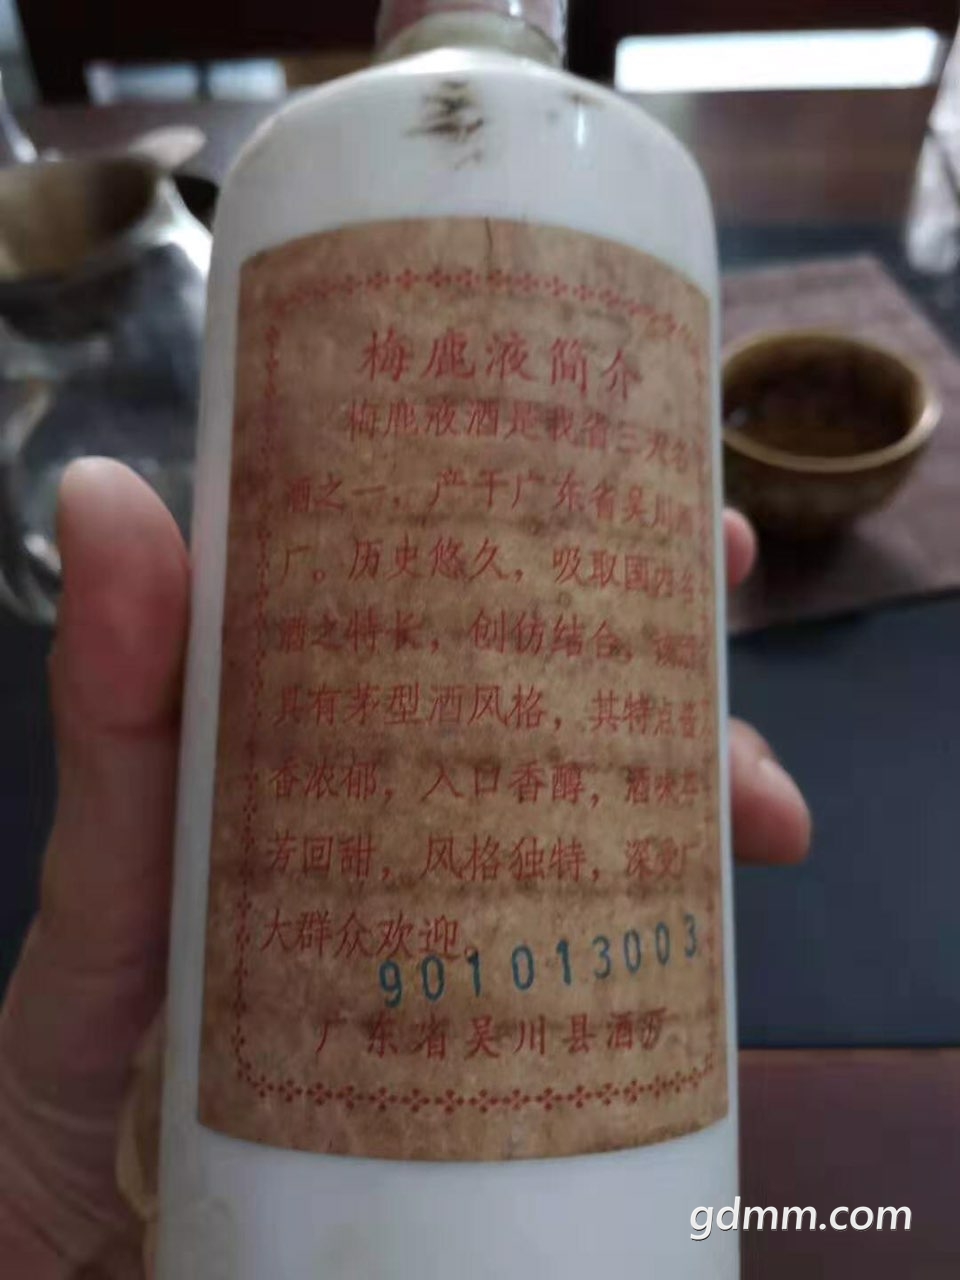 梅鹿液简介
梅鹿液酒是我省三大名
酒之一，产于广东省吴川
厂。历史悠久，吸取国内名
酒之特长，创仿结合，该酒
具有茅型酒风格，其特点酱
香浓郁，入口香醇，酒味
芳回甜，风格独特，深受广
大群众欢迎。
901013003
广东省吴川县酒厂
gdmm.com